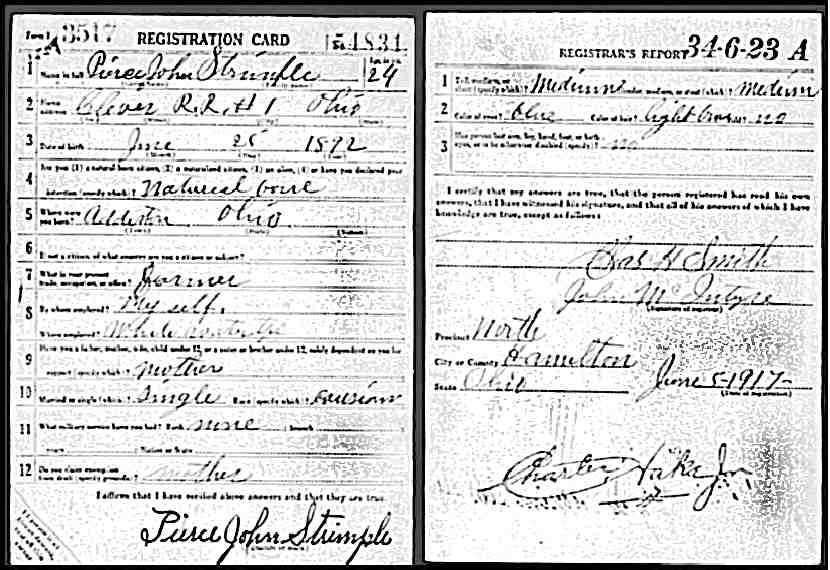 Form 1 3517 REGISTRATION CARD No. 4834
1 Name in full Pierce John Strimple Age, in yrs. 24
2 Home address R.R. # 1 Ohio
3 Date of birth June 25 1892
4 Are you (1) a natural-born citizen, (2) a naturalized citizen, (3) an alien, (4) or have you declared your
intention (specify which)? Natural born
5 Where were you born? Addiston Ohio
6 If not a citizen, of what country are you a citizen or subject?
7 What is your present trade, occupation, or office? Farmer
8 By whom employed? My self.
Where employed?
9 Have you a father, mother, wife, child under 12, or a sister or brother under 12, solely dependent on you for
support (specify which)? mother
10 Married or single (which)? Single Race (specify which)?
11 What military service have you had? Rank none ; branch
years ; Nation or State
12 Do you claim exemption from draft (specify grounds)? mother
I affirm that I have verified above answers and that they are true.
Pierce John Strimple
REGISTRAR'S REPORT 34-6-23 A
1 Tall, medium, or short (specify which)? Medium Slender, medium, or stout (which)? Medium
2 Color of eyes? blue Color of hair? light brown no
3 Has person lost arm, leg, hand, foot, or both
eyes, or is he otherwise disabled (specify)? no
I certify that my answers are true, that the person registered has read his own
answers, that I have witnessed his signature, and that all of his answers of which I have
knowledge are true, except as follows:
Chas H Smith
John McIntyre
(Signature of registrar)
Precinct North
City or County Hamilton
State Ohio June 5-1917-
(Date of registration)